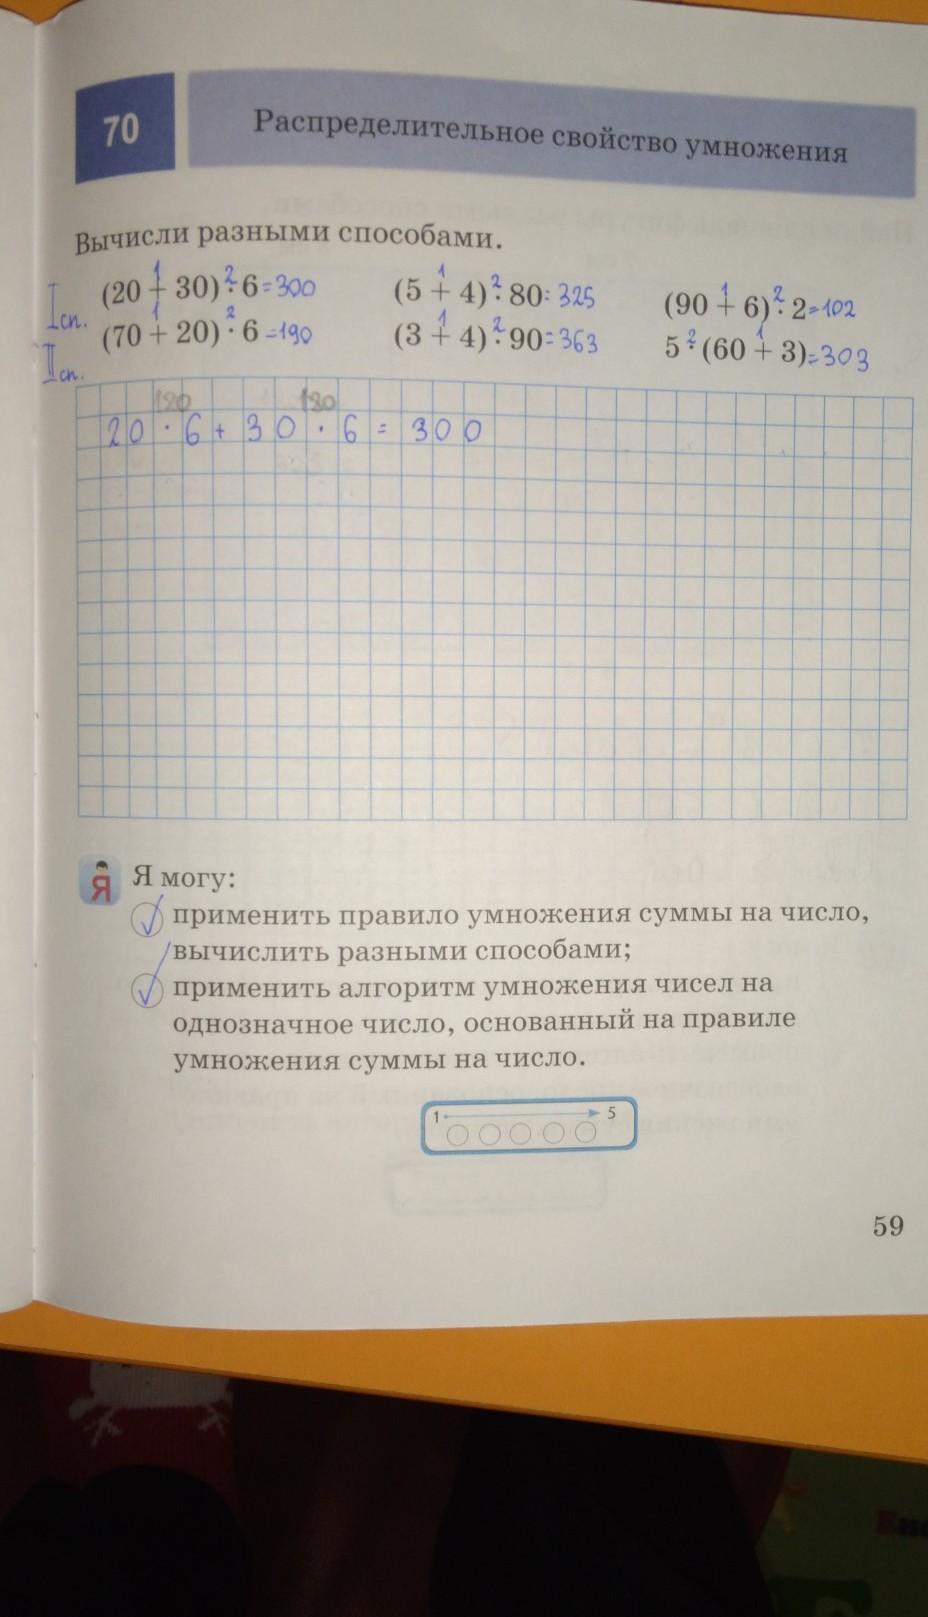 70
Распределительное свойство умножения
Вычисли разными способами.
I сп.
1 2
(20 + 30) · 6 = 300
1 2
(5 + 4) · 80 = 325
1 2
(90 + 6) · 2 = 102
II сп.
1 2
(70 + 20) · 6 = 190
1 2
(3 + 4) · 90 = 363
2 1
5 · (60 + 3) = 303
120 180
20 · 6 + 30 · 6 = 300
Я
Я могу:
применить правило умножения суммы на число,
вычислить разными способами;
применить алгоритм умножения чисел на
однозначное число, основанный на правиле
умножения суммы на число.
1 5
59